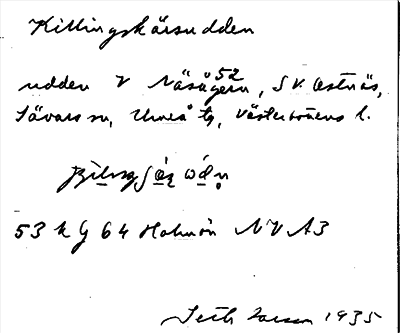 Killingskärsudden
udden V Näsägern, 52 SV. Ostnäs,
Sävars sn, Umeå tg, Västerbottens l.
53 k G 64 Holmön NV A3
Seth Larsson 1935